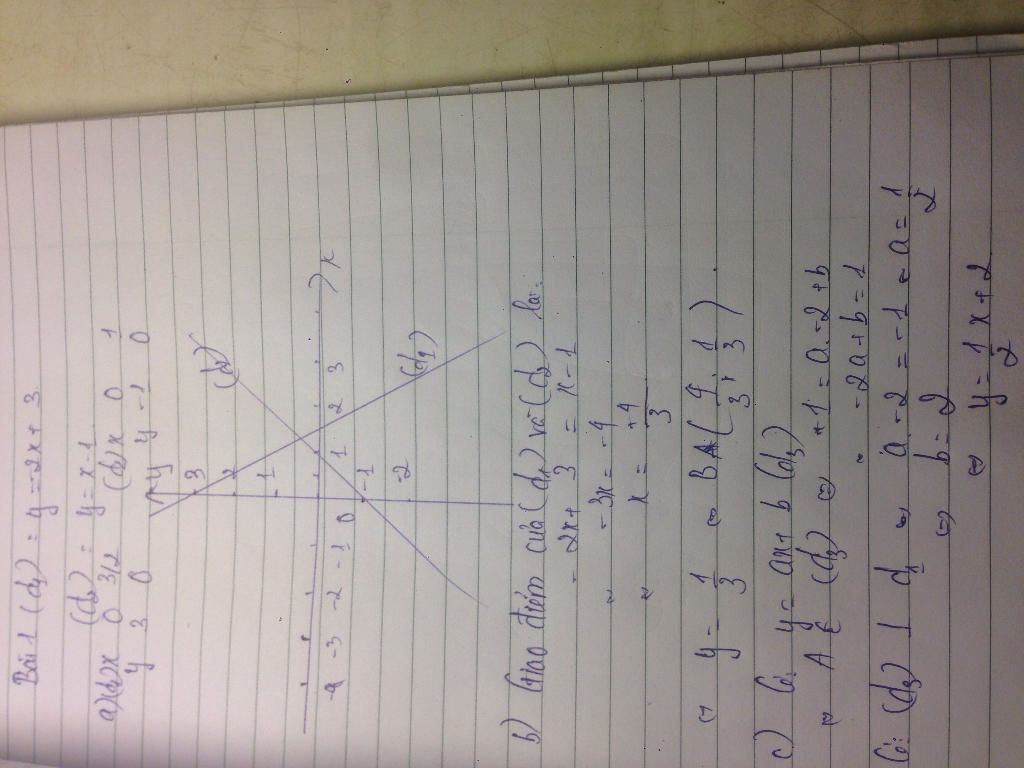 Bài 1 (d1) = y = -2x + 3
(d2) = y = x - 1
a) (d1) x 0 3/2 (d2) x 0 1
y 3 0 y -1 0
y
3
2
1
(d2)
-4 -3 -2 -1 0 1 2 3 x
-1
-2
(d1)
b) Giao điểm của (d1) và (d2) là:
-2x + 3 = x - 1
-3x = -4
x = 4/3
⇔ y = 1/3 ⇔ B (4/3; 1/3)
c) Gọi y = ax + b (d3)
A ∈ (d3) ⇔ 1 = a.-2 + b
-2a + b = 1
Có: (d3) ⊥ d1 ⇔ a.-2 = -1 ⇔ a = 1/2
⇔ b = 2
⇔ y = 1/2 x + 2